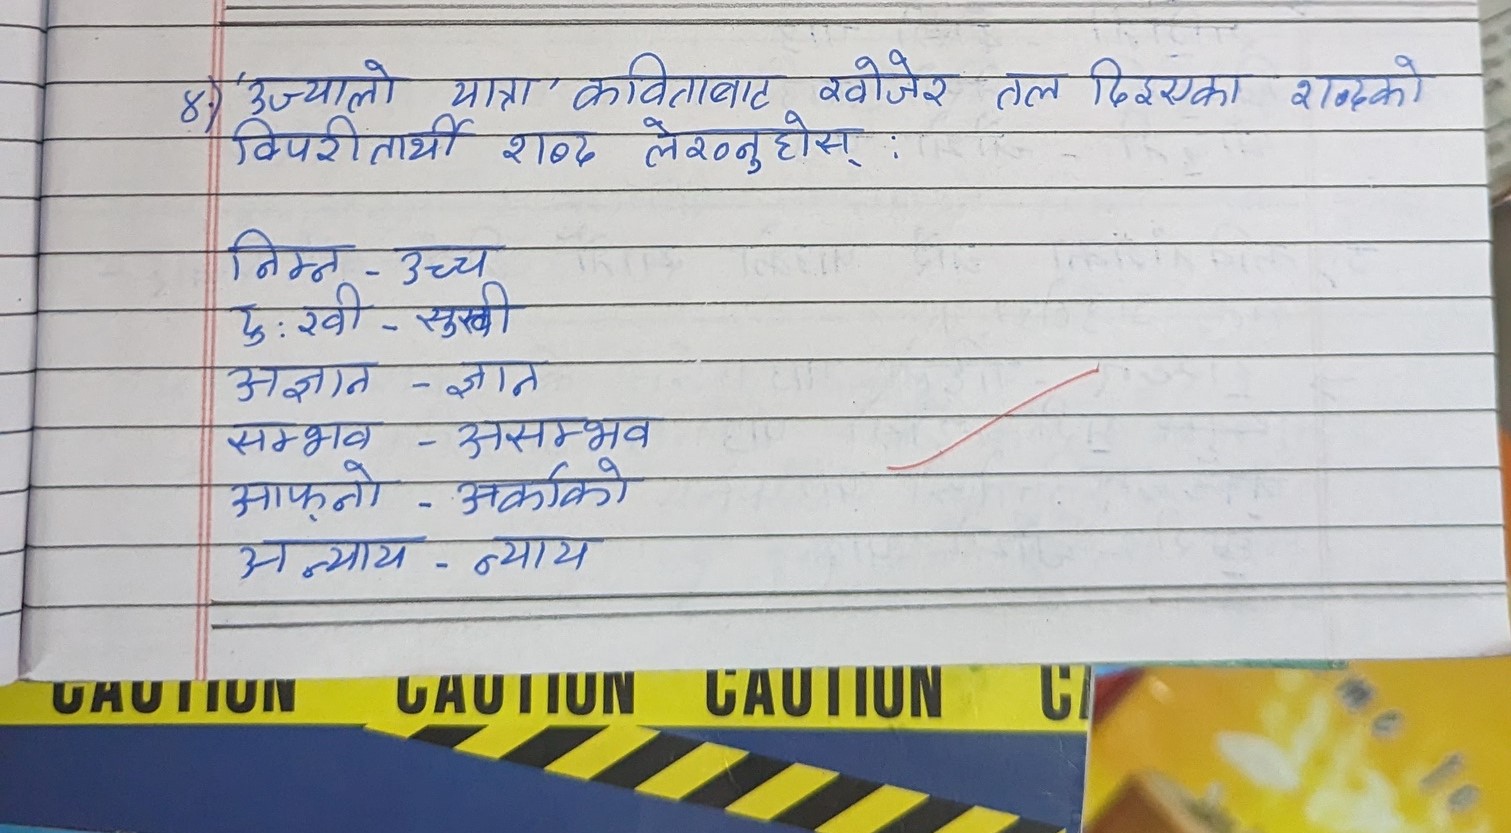 ४) 'उज्यालो यात्रा' कविताबाट खोजेर तल दिइएका शब्दको
विपरीतार्थी शब्द लेख्नुहोस् :
निम्न - उच्च
दुःखी - सुखी
अज्ञान - ज्ञान
सम्भव - असम्भव
आफ्नो - अर्काको
अन्याय - न्याय
CAUTION CAUTION CAUTION CA